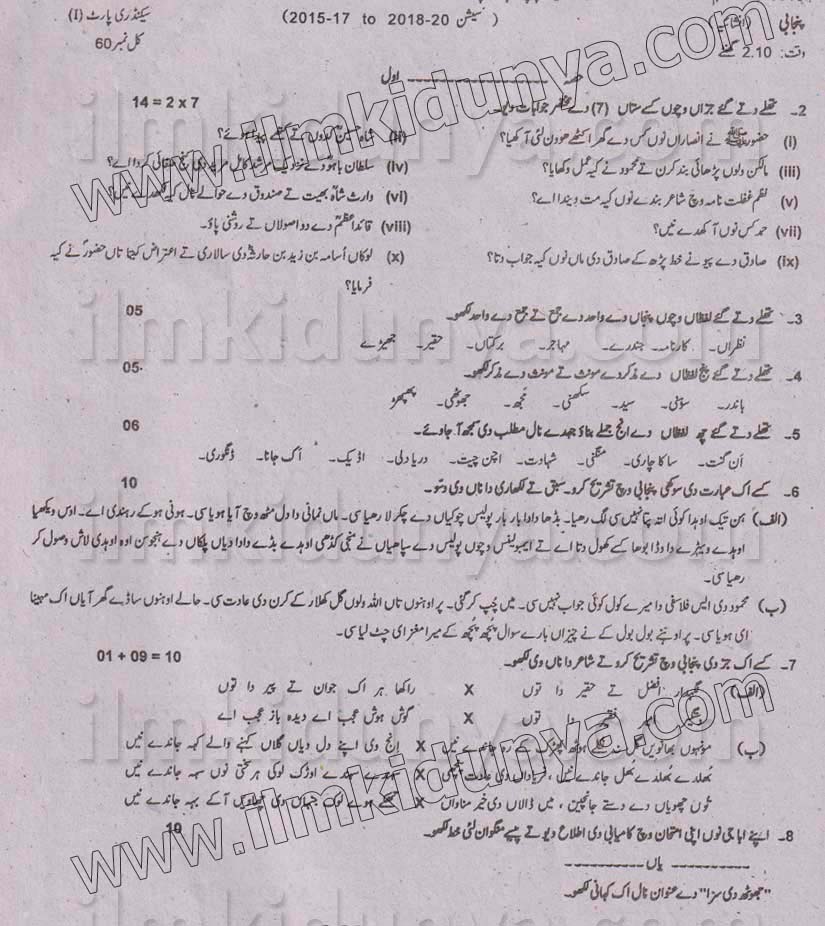 سیکنڈری پارٹ (I)
( سیشن 2015-17 to 2018-20 )
پنجابی (انشائیہ)
کل نمبر 60
وقت: 2.10 گھنٹے
حصہ ---------------- اول
2۔ تھلے دتے گئے جزاں وچوں کسے ستاں (7) دے مختصر جوابات دیو۔ 14 = 2 x 7
(i) حضورﷺ نے انصاراں نوں کس دے گھر اکٹھے ہوون لئی آکھیا؟ (ii) شاہ حسین کتھے پیدا ہوئے؟
(iii) مالکن ولوں پڑھائی بند کرن تے محمود نے کیہ عمل وکھایا؟ (iv) سلطان باہو دے نزدیک مرشد کامل مرید دی کردا اے؟
(v) نظم غفلت نامہ وچ شاعر بندے نوں کیہ مت دیندا اے؟ (vi) وارث شاہ بھیت تے صندوق دے حوالے نال کیہ لکھدے نیں؟
(vii) حمد کس نوں آکھدے نیں؟ (viii) قائداعظم دے دو اصولاں تے روشنی پاؤ۔
(ix) صادق دے پیو نے خط پڑھ کے صادق دی ماں نوں کیہ جواب دتا؟ (x) لوکاں اُسامہ بن زید بن حارثہ دی سالاری تے اعتراض کیتا تاں حضور نے کیہ
فرمایا؟
3۔ تھلے دتے گئے لفظاں وچوں پنجاں دے واحد دے جمع تے جمع دے واحد لکھو۔ 05
نظراں۔ کارنامہ۔ جندرے۔ مہاجر۔ برکتاں۔ حقیر۔ جھیڑے
4۔ تھلے دتے گئے پنج لفظاں دے مذکر دے مونث تے مونث دے مذکر لکھو۔ 05
باندر۔ سوہنی۔ سید۔ سکھنی۔ مجھ۔ جھوٹھی۔ پھپھڑ
5۔ تھلے دتے گئے چھ لفظاں دے انج جملے بناؤ جیہدے نال مطلب دی سمجھ آ جاوے۔ 06
اَن گنت۔ ساکا چاری۔ منگنی۔ شہادت۔ اچن چیت۔ دریا دلی۔ اڈیک۔ اَک جانا۔ ڈنگوری۔
6۔ کسے اک عبارت دی سوکھی پنجابی وچ تشریح کرو۔ سبق تے لکھاری دا ناں وی دسو۔ 10
(الف) ہن تیک اوہدا کوئی اتہ پتا نہیں سی لگ رھیا۔ بڈھا دادا بار بار پولیس چوکیاں دے چکر لا رھیا سی۔ ماں نمانی دا دل مٹھ وچ آیا ہویا سی۔ ہونی ہو کے رہندی اے۔ اوس ویکھیا
اوہدے ویہڑے دا وڈا بوھا کے کھول دتا اے تے ایمبولینس وچوں پولیس دے سپاھیاں نے منجی کڈھی اوہدے بڈے دادا دیاں پلکاں دے ہنجو سن اوہ اوہدی لاش وصول کر
رھیا سی۔
(ب) محمود دی ایس فلاسفی دا میرے کول کوئی جواب نہیں سی۔ میں چپ کر گئی۔ پر اوہنوں تاں اللہ ولوں گل کھلار کے کرن دی عادت سی۔ حالے اوہنوں ساڈے گھر آیاں اک مہینا
ای ہویا سی۔ پر اوہنے بول بول کے نے چیزاں بارے سوال پُچھ پُچھ کے میرا مغز ای چٹ لیا سی۔
7۔ کسے اک جز دی پنجابی وچ تشریح کرو تے شاعر دا ناں وی لکھو۔ 01 + 09 = 10
(الف) افضل تے حقیر دا توں X راکھا ہر اک جوان تے پیر دا توں
امیر دا توں X گوش ہوش عجب اے دیدہ باز عجب اے
(ب) مونہوں بھانویں X اِنج وی اپنے دل دیاں گلاں کہنے والے کہہ جاندے نیں
بُھلدے بُھلدے بُھل جاندے نیں، فریاداں دی عادت X سہندے سہندے اوڑک لوکی ہر سختی نوں سہہ جاندے نیں
توں چھویاں دے دستے جانچیں، میں ڈالاں دی خیر مناواں X ہوے لوک جنہاں دی آکے بہہ جاندے نیں
8۔ اپنے ابا جی نوں اپنی امتحان وچ کامیابی دی اطلاع دیو تے پیسے منگوان لئی خط لکھو۔ 10
---------- یاں ----------
"جھوٹھ دی سزا" دے عنوان نال اک کہانی لکھو۔
www.ilmkidunya.com
www.ilmkidunya.com
ilmkidunya.com
ilmkidunya.com
ilmkidunya.com
ilmkidunya.com
ilmkidunya.com